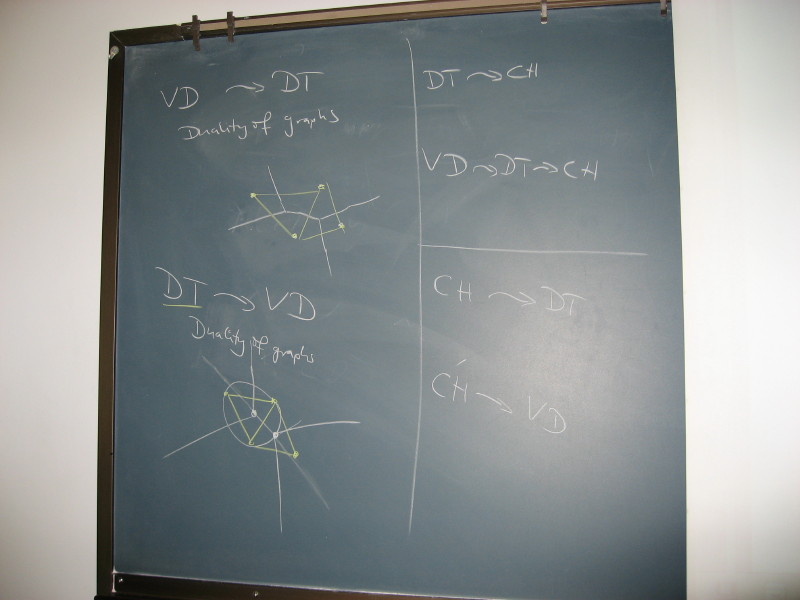 VD → DT
Duality of graphs
DT → VD
Duality of graphs
DT → CH
VD → DT → CH
CH → DT
CH → VD